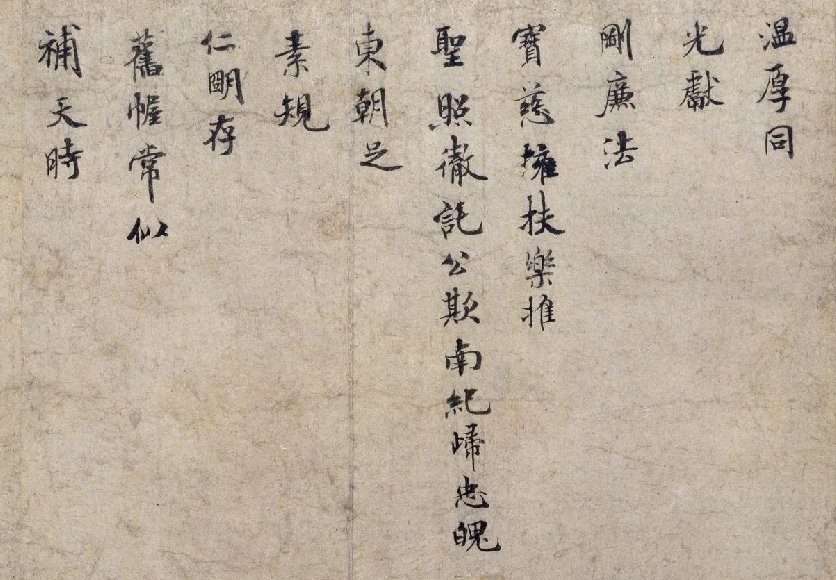 溫厚同
光獻
剛廉法
寶慈擁扶樂推
聖照徹託公欺南紀歸忠魄
東朝足
素規
仁明存
舊幄常似
補天時